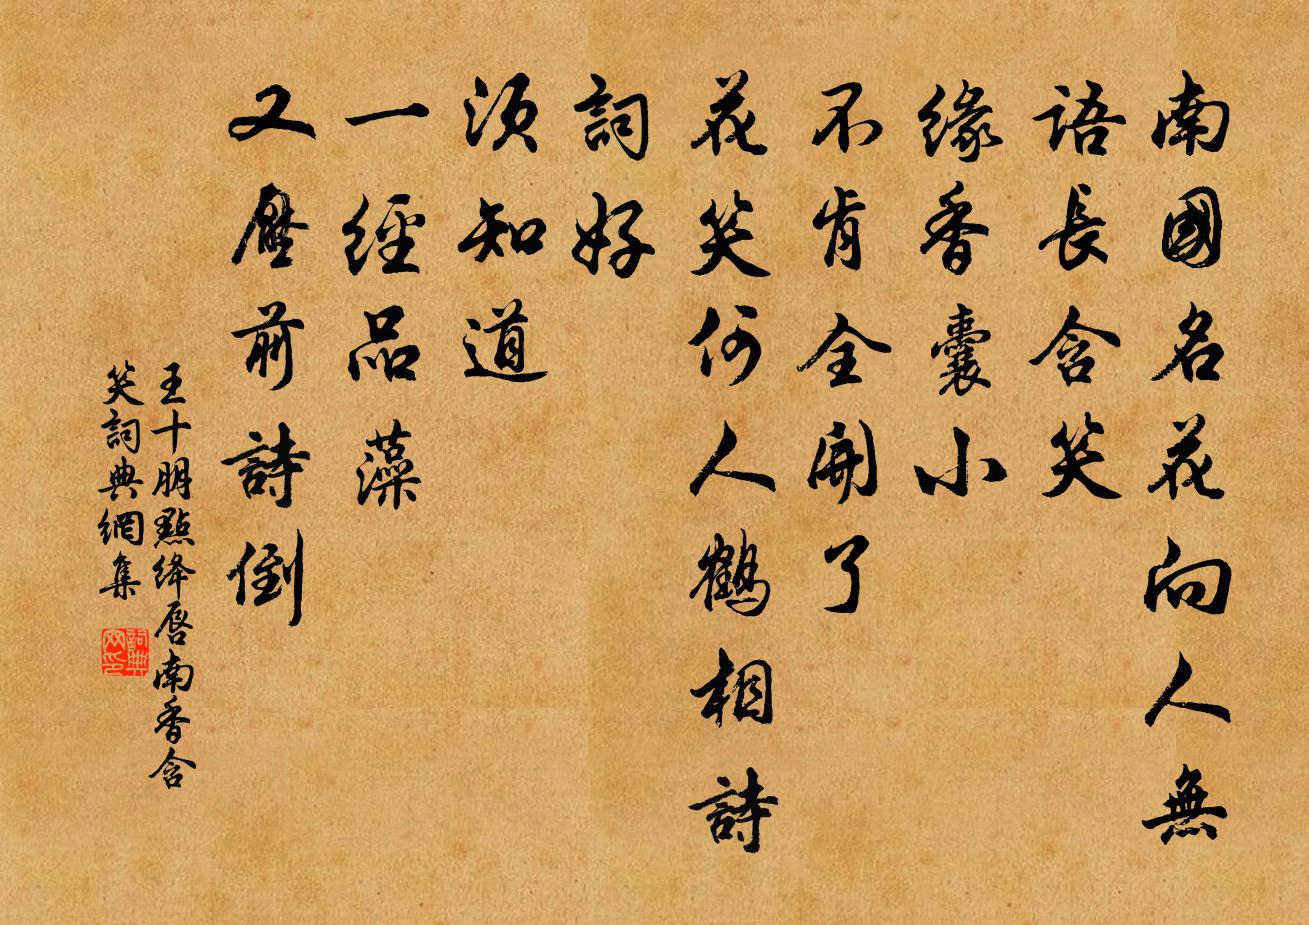 南國名花向人無
語長含笑
緣香囊小
不肯全開了
花笑何人鶴相詩
詞好
須知道
一經品藻
又壓前詩倒
王十朋點絳唇南香含
笑詞典網集
詞典网印